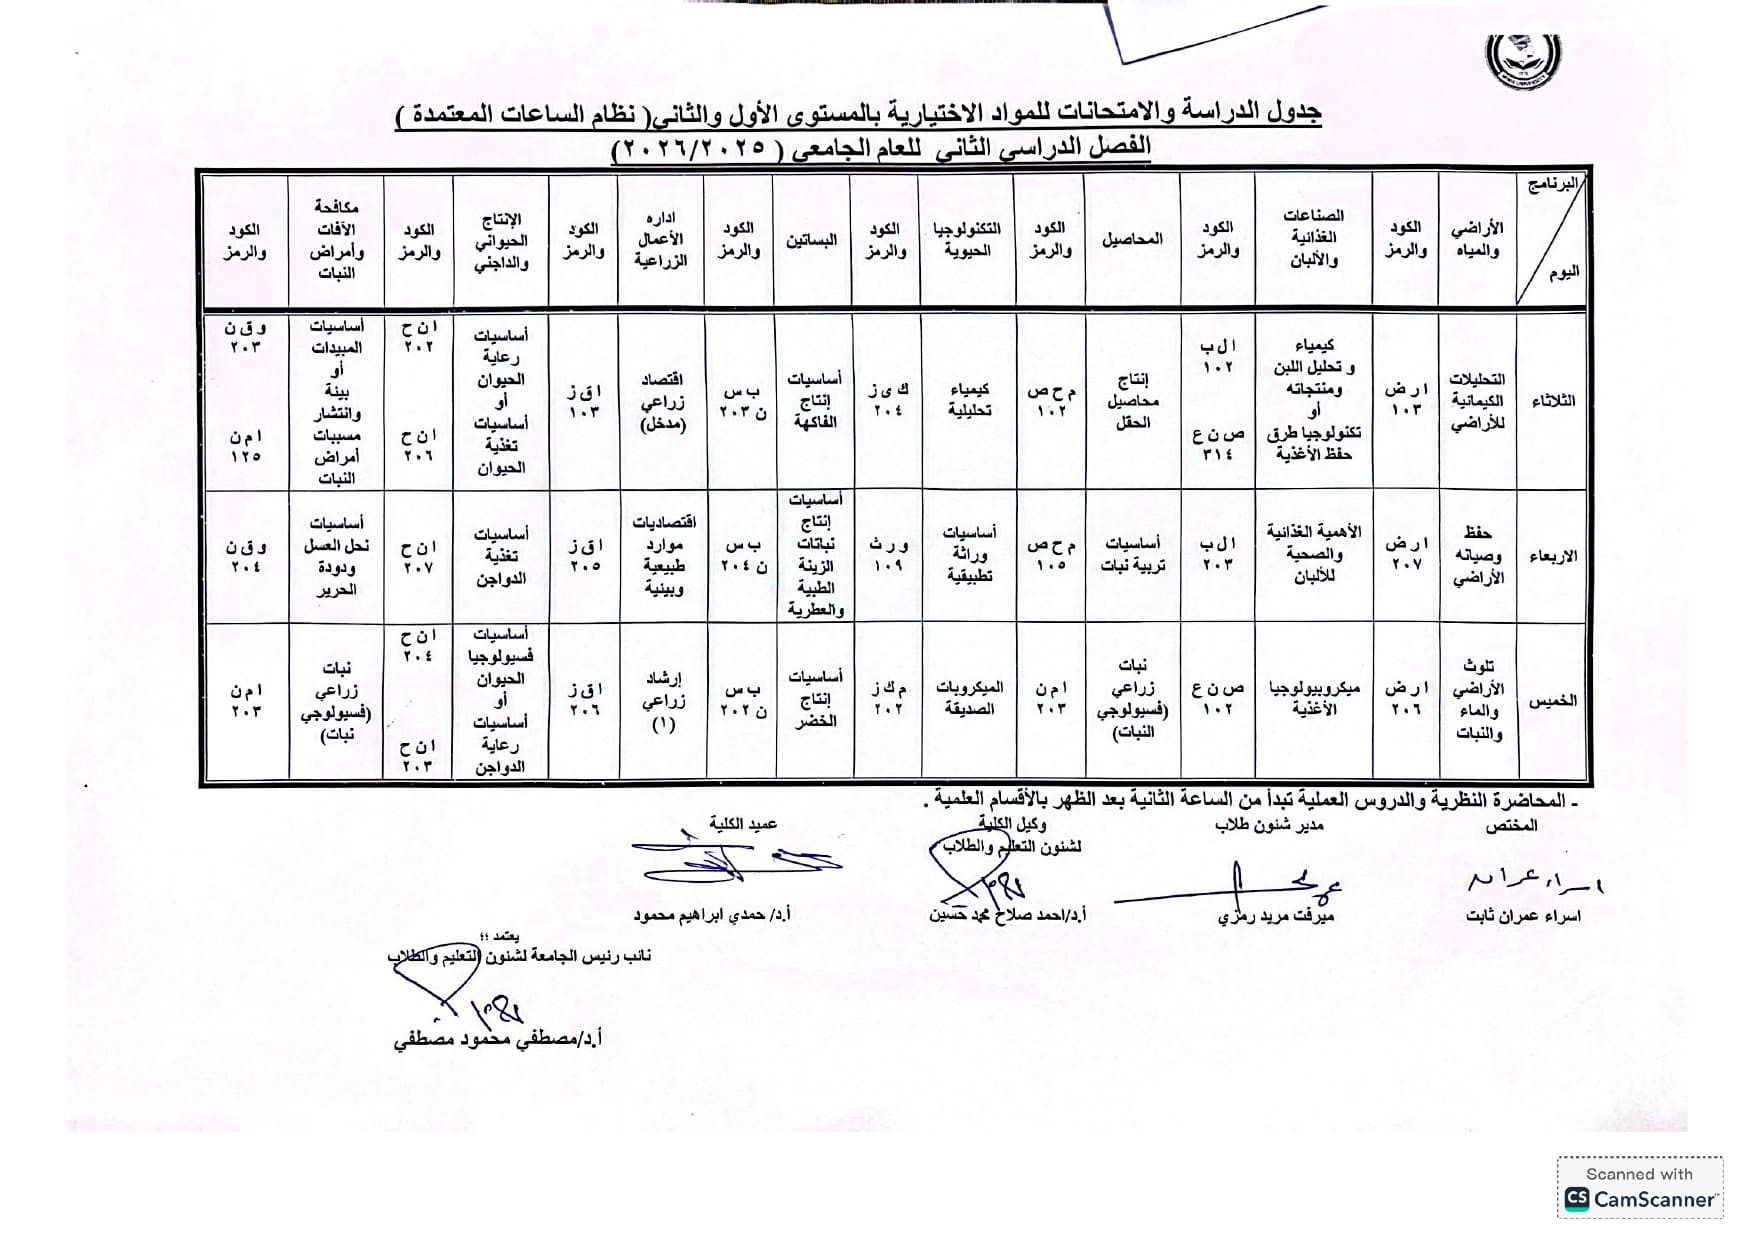 MINIA UNIVERSITY
جدول الدراسة والامتحانات للمواد الاختيارية بالمستوى الأول والثاني( نظام الساعات المعتمدة )
الفصل الدراسي الثاني للعام الجامعي ( ٢٠٢٦/٢٠٢٥)
البرنامج
اليوم
الأراضي
والمياه
الكود
والرمز
الصناعات
الغذائية
والألبان
الكود
والرمز
المحاصيل
الكود
والرمز
التكنولوجيا
الحيوية
الكود
والرمز
البساتين
الكود
والرمز
اداره
الأعمال
الزراعية
الكود
والرمز
الإنتاج
الحيواني
والداجني
الكود
والرمز
مكافحة
الآفات
وأمراض
النبات
الكود
والرمز
الثلاثاء
التحليلات
الكيمائية
للأراضي
ا ر ض
١٠٣
كيمياء
و تحليل اللبن
ومنتجاته
أو
تكنولوجيا طرق
حفظ الأغذية
ا ل ب
١٠٢
ص ن ع
٣١٤
إنتاج
محاصيل
الحقل
م ح ص
١٠٢
كيمياء
تحليلية
ك ى ز
٢٠٤
أساسيات
إنتاج
الفاكهة
ب س
ن ٢٠٣
اقتصاد
زراعي
(مدخل)
ا ق ز
١٠٣
أساسيات
رعاية
الحيوان
أو
أساسيات
تغذية
الحيوان
ا ن ح
٢٠٢
ا ن ح
٢٠٦
أساسيات
المبيدات
أو
بيئة
وانتشار
مسببات
أمراض
النبات
و ق ن
٢٠٣
ا م ن
١٢٥
الاربعاء
حفظ
وصيانه
الأراضي
ا ر ض
٢٠٧
الأهمية الغذائية
والصحية
للألبان
ا ل ب
٢٠٣
أساسيات
تربية نبات
م ح ص
١٠٥
أساسيات
وراثة
تطبيقية
و ر ث
١٠٩
أساسيات
إنتاج
نباتات
الزينة
الطبية
والعطرية
ب س
ن ٢٠٤
اقتصاديات
موارد
طبيعية
وبيئية
ا ق ز
٢٠٥
أساسيات
تغذية
الدواجن
ا ن ح
٢٠٧
أساسيات
نحل العسل
ودودة
الحرير
و ق ن
٢٠٤
الخميس
تلوث
الأراضي
والماء
والنبات
ا ر ض
٢٠٦
ميكروبيولوجيا
الأغذية
ص ن ع
١٠٢
نبات
زراعي
(فسيولوجي
النبات)
ا م ن
٢٠٣
الميكروبات
الصديقة
م ك ز
٢٠٢
أساسيات
إنتاج
الخضر
ب س
ن ٢٠٢
إرشاد
زراعي
(١)
ا ق ز
٢٠٦
أساسيات
فسيولوجيا
الحيوان
أو
أساسيات
رعاية
الدواجن
ا ن ح
٢٠٤
ا ن ح
٢٠٣
نبات
زراعي
(فسيولوجي
نبات)
ا م ن
٢٠٣
- المحاضرة النظرية والدروس العملية تبدأ من الساعة الثانية بعد الظهر بالأقسام العلمية .
المختص
مدير شئون طلاب
وكيل الكلية
لشئون التعليم والطلاب
عميد الكلية
اسراء عمران
اسراء عمران ثابت
ميرفت مريد رمزي
أ.د/احمد صلاح محمد حسين
أ.د/ حمدي ابراهيم محمود
يعتمد ؛؛
نائب رئيس الجامعة لشئون التعليم والطلاب
أ.د/مصطفي محمود مصطفي
Scanned with
CS CamScanner